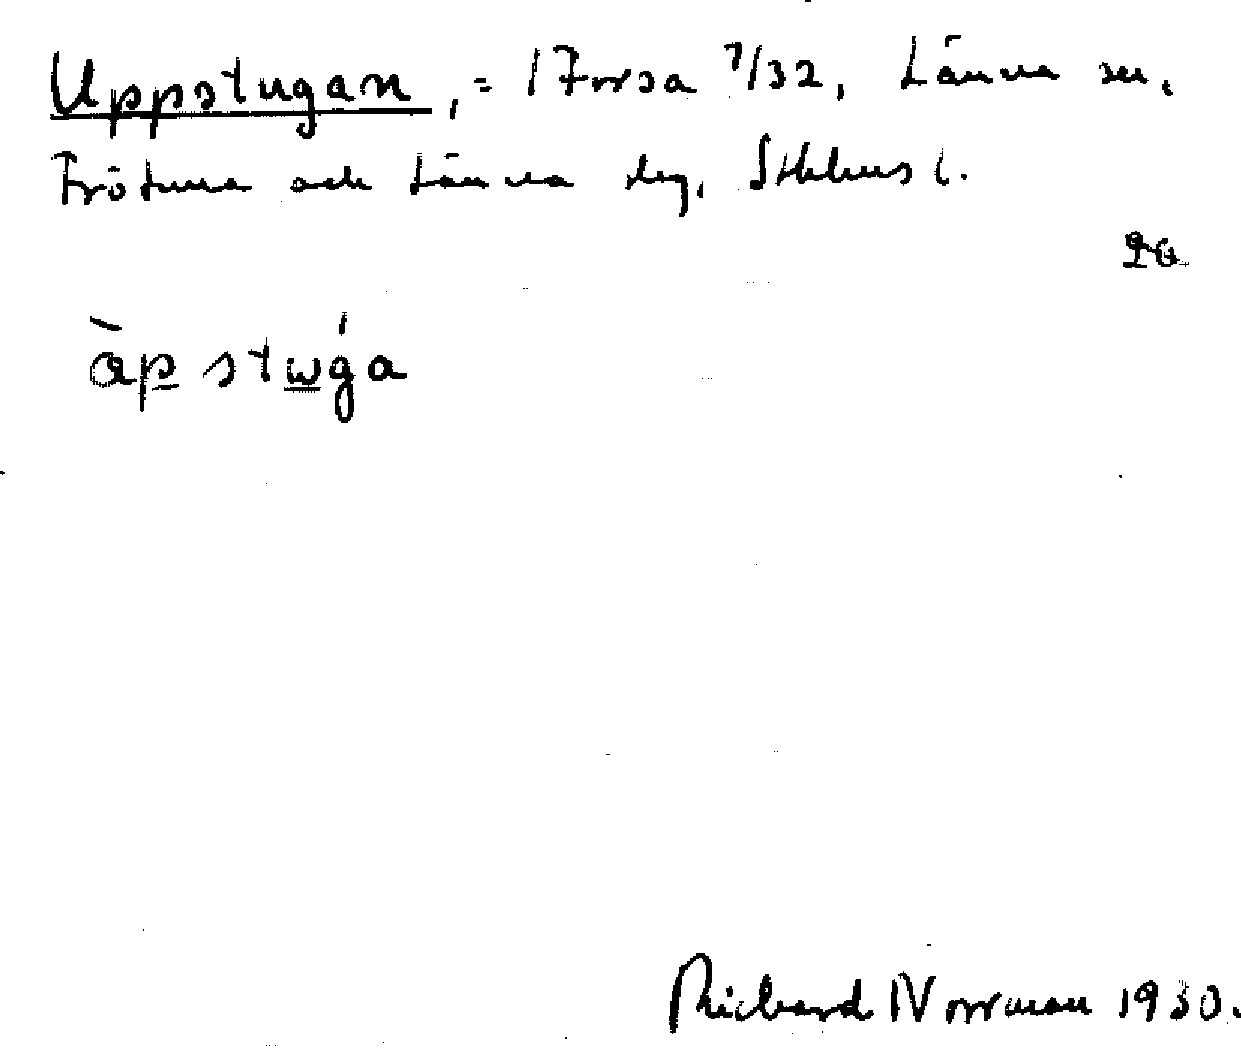 Uppstugan, = 1 Forsa 7/32, Länna sn.
Frötuna och Länna slg. Sthlms l.
àp stwǵa
Richard Norrman 1930.